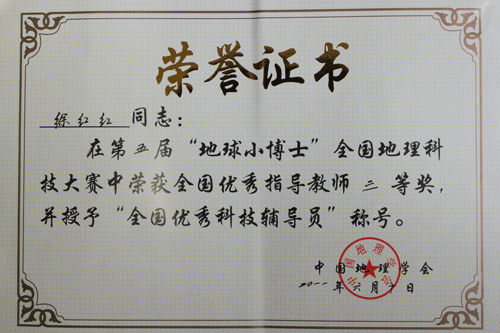 荣誉证书
徐红红 同志：
在第五届“地球小博士”全国地理科
技大赛中荣获全国优秀指导教师 二 等奖，
并授予“全国优秀科技辅导员”称号。
中国地理学会
二〇一一年六月